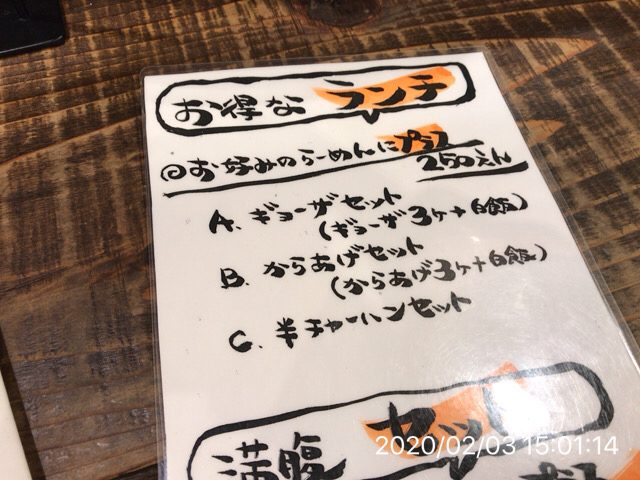 お得な ランチ
◎お好みのらーめんにプラス
250えん
A. ギョーザセット
(ギョーザ3ケ+白飯)
B. からあげセット
(からあげ3ケ+白飯)
C. 半チャーハンセット
満腹 セット
2020/02/03 15:01:14
プラス